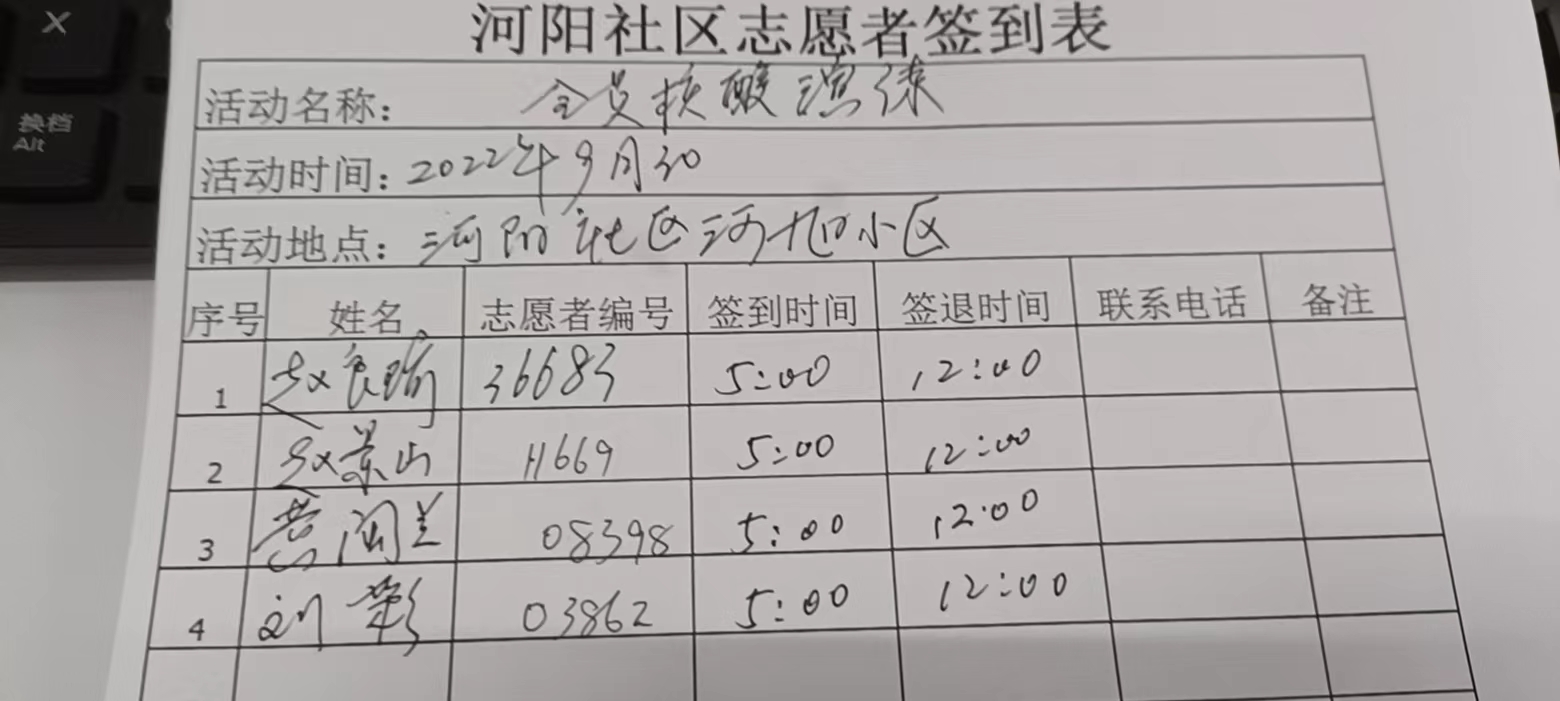 X
换档
Alt
河阳社区志愿者签到表
活动名称： 全员核酸演练
活动时间：2022年9月30
活动地点：河阳社区河旭小区
序号 姓名 志愿者编号 签到时间 签退时间 联系电话 备注
1 赵良瑜 36683 5:00 12:00
2 赵景山 11669 5:00 12:00
3 黄闰兰 08398 5:00 12:00
4 刘彰 03862 5:00 12:00